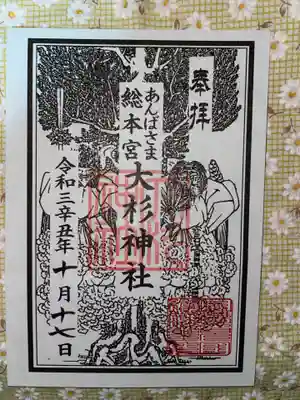 奉拝
あんばさま
総本宮
大杉神社
令和三辛丑年 十月十七日